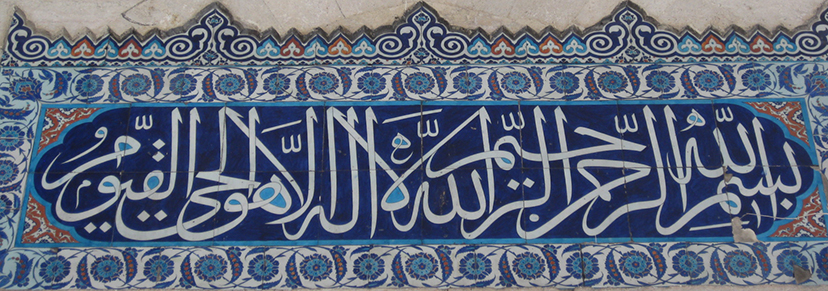 بسم الله الرحمن الرحيم الله لا اله الا هو الحي القيوم